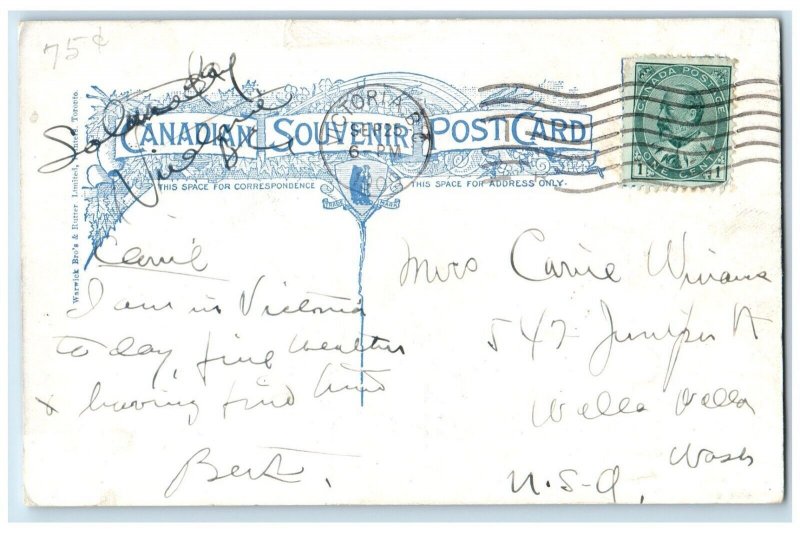 75¢
CANADIAN SOUVENIR POST CARD
THIS SPACE FOR CORRESPONDENCE
THIS SPACE FOR ADDRESS ONLY.
VICTORIA, B.C.
SEP 28
6 PM
CANADA POSTAGE
ONE CENT
1 1
Warwick Bro's & Rutter, Limited, Toronto.
Carrie
I am in Victoria
today, fine weather
& having fine time
Bert.
Mrs Carrie Winans
547 Juniper St
Walla Walla
Wash
U.S.A.